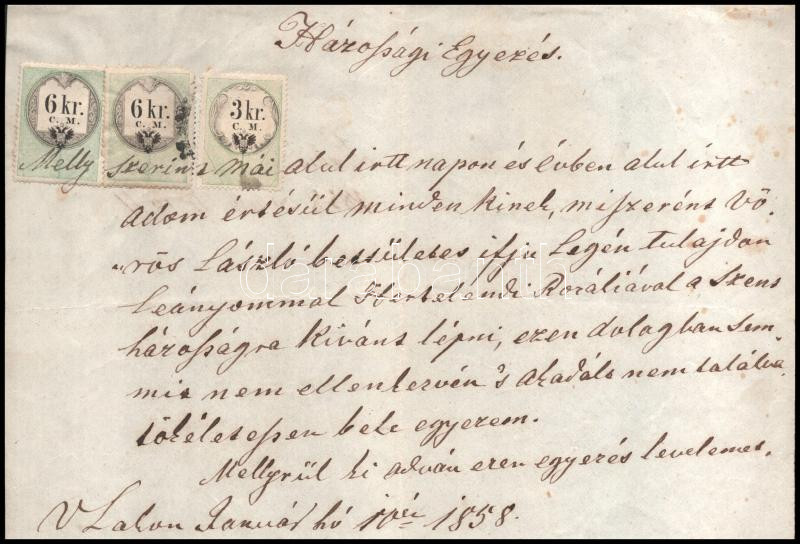 Házossági Egyezés.
6 kr. C. M. 6 kr. C. M. 3 kr. C. M.
Melly szerint mái alul irtt napon és évben alul irtt
adom értésül minden kinek, miszerént Vö-
rös László betsületes ifju Legén tulajdon
leányommal Hertelendi Rozáliával a Szent
házosságra kiváns lépni, ezen dologban sem-
mit nem ellenkezvén 's akadált nem találva
tökéletessen bele egyezem.
Mellyrül ki adván ezen egyezés levelemet.
V Lakon Január hó 1858.
darabanth